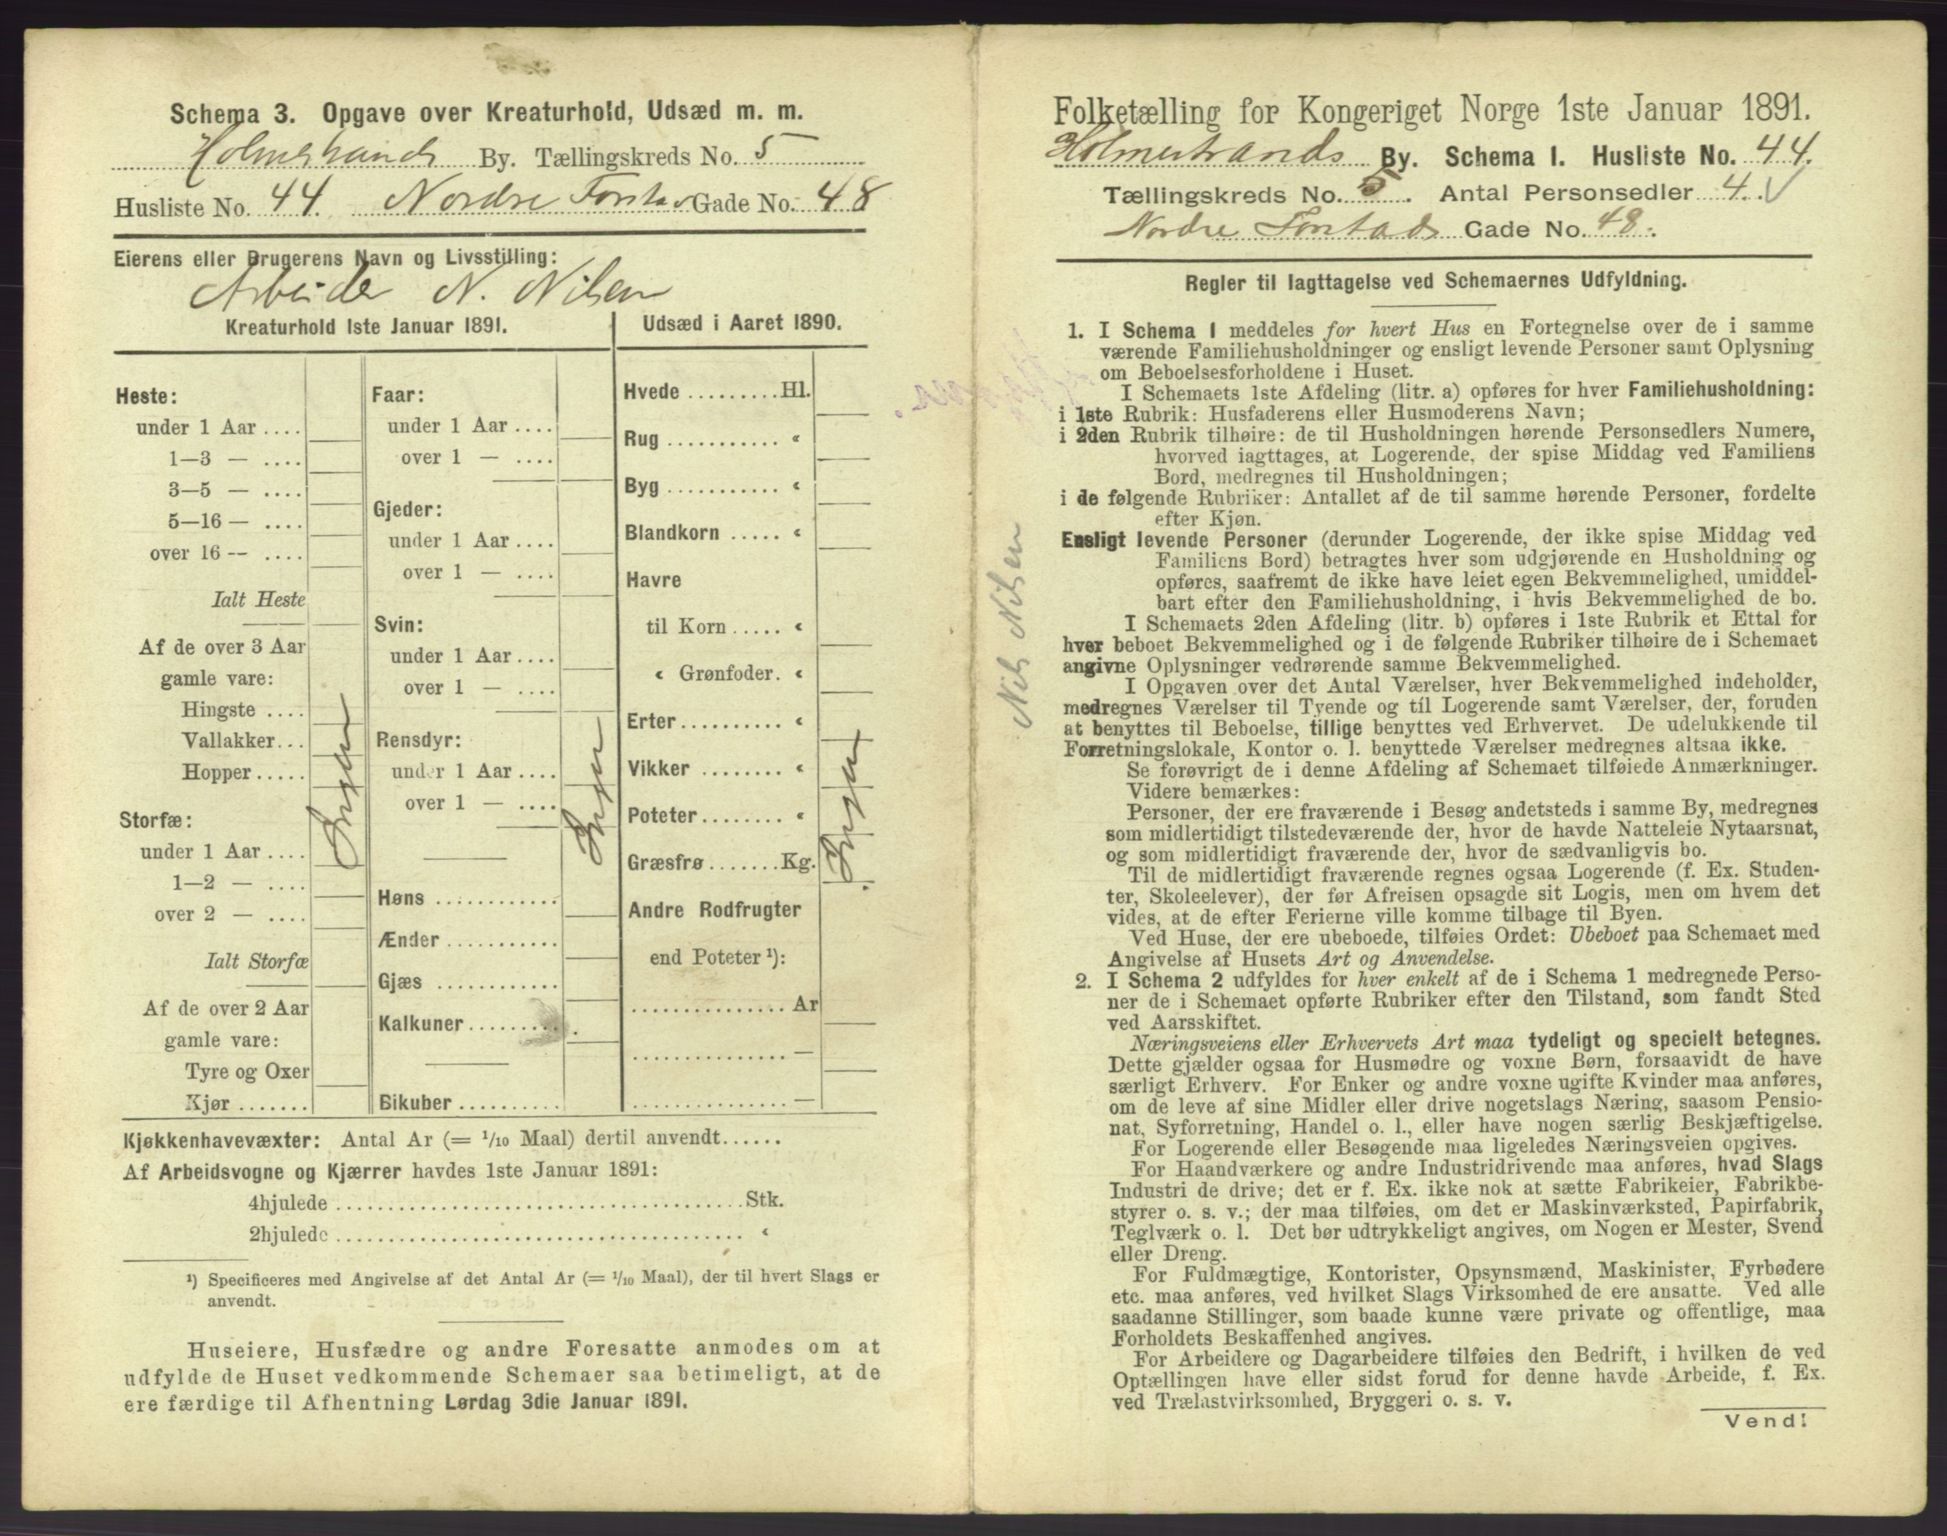 Schema 3. Opgave over Kreaturhold, Udsæd m. m.
Holmestrands By. Tællingskreds No. 5
Husliste No. 44. Nordre Forstads Gade No. 48
Eierens eller Brugerens Navn og Livsstilling:
Arbeider N. Nilsen
Kreaturhold 1ste Januar 1891.
Heste:
under 1 Aar ....
1—3 — ....
3—5 — ....
5—16 — ....
over 16 — ....
Ialt Heste
Af de over 3 Aar
gamle vare:
Hingste ....
Vallakker...
Hopper.....
Storfæ:
under 1 Aar ....
1—2 — ....
over 2 — ....
Ialt Storfæ
Af de over 2 Aar
gamle vare:
Tyre og Oxer
Kjør .......
Ingen
Faar:
under 1 Aar ....
over 1 — ....
Gjeder:
under 1 Aar ....
over 1 — ....
Svin:
under 1 Aar ....
over 1 — ....
Rensdyr:
under 1 Aar ....
over 1 — ....
Høns ............
Ænder ...........
Gjæs ............
Kalkuner.........
Bikuber ..........
Ingen
Udsæd i Aaret 1890.
Hvede .........Hl.
Rug ........... «
Byg ........... «
Blandkorn ..... «
Havre
til Korn ..... «
« Grønfoder. «
Erter.......... «
Vikker ........ «
Poteter........ «
Græsfrø .......Kg.
Andre Rodfrugter
end Poteter ¹):
............... Ar
............... —
............... —
Ingen
Kjøkkenhavevæxter: Antal Ar (= ¹/₁₀ Maal) dertil anvendt......
Af Arbeidsvogne og Kjærrer havdes 1ste Januar 1891:
4hjulede ........................................Stk.
2hjulede ........................................ «
¹) Specificeres med Angivelse af det Antal Ar (= ¹/₁₀ Maal), der til hvert Slags er
anvendt.
Huseiere, Husfædre og andre Foresatte anmodes om at
udfylde de Huset vedkommende Schemaer saa betimeligt, at de
ere færdige til Afhentning Lørdag 3die Januar 1891.
Nils Nilsen
Folketælling for Kongeriget Norge 1ste Januar 1891.
Holmestrands By. Schema I. Husliste No. 44.
Tællingskreds No. 5. Antal Personsedler 4. √
Nordre Forstads Gade No. 48.
Regler til Iagttagelse ved Schemaernes Udfyldning.
1. I Schema I meddeles for hvert Hus en Fortegnelse over de i samme
værende Familiehusholdninger og ensligt levende Personer samt Oplysning
om Beboelsesforholdene i Huset.
I Schemaets 1ste Afdeling (litr. a) opføres for hver Familiehusholdning:
i 1ste Rubrik: Husfaderens eller Husmoderens Navn;
i 2den Rubrik tilhøire: de til Husholdningen hørende Personsedlers Numere,
hvorved iagttages, at Logerende, der spise Middag ved Familiens
Bord, medregnes til Husholdningen;
i de følgende Rubriker: Antallet af de til samme hørende Personer, fordelte
efter Kjøn.
Ensligt levende Personer (derunder Logerende, der ikke spise Middag ved
Familiens Bord) betragtes hver som udgjørende en Husholdning og
opføres, saafremt de ikke have leiet egen Bekvemmelighed, umiddel-
bart efter den Familiehusholdning, i hvis Bekvemmelighed de bo.
I Schemaets 2den Afdeling (litr. b) opføres i 1ste Rubrik et Ettal for
hver beboet Bekvemmelighed og i de følgende Rubriker tilhøire de i Schemaet
angivne Oplysninger vedrørende samme Bekvemmelighed.
I Opgaven over det Antal Værelser, hver Bekvemmelighed indeholder,
medregnes Værelser til Tyende og til Logerende samt Værelser, der, foruden
at benyttes til Beboelse, tillige benyttes ved Erhvervet. De udelukkende til
Forretningslokale, Kontor o. l. benyttede Værelser medregnes altsaa ikke.
Se forøvrigt de i denne Afdeling af Schemaet tilføiede Anmærkninger.
Videre bemærkes:
Personer, der ere fraværende i Besøg andetsteds i samme By, medregnes
som midlertidigt tilstedeværende der, hvor de havde Natteleie Nytaarsnat,
og som midlertidigt fraværende der, hvor de sædvanligvis bo.
Til de midlertidigt fraværende regnes ogsaa Logerende (f. Ex. Studen-
ter, Skoleelever), der før Afreisen opsagde sit Logis, men om hvem det
vides, at de efter Ferierne ville komme tilbage til Byen.
Ved Huse, der ere ubeboede, tilføies Ordet: Ubeboet paa Schemaet med
Angivelse af Husets Art og Anvendelse.
2. I Schema 2 udfyldes for hver enkelt af de i Schema 1 medregnede Perso-
ner de i Schemaet opførte Rubriker efter den Tilstand, som fandt Sted
ved Aarsskiftet.
Næringsveiens eller Erhvervets Art maa tydeligt og specielt betegnes.
Dette gjælder ogsaa for Husmødre og voxne Børn, forsaavidt de have
særligt Erhverv. For Enker og andre voxne ugifte Kvinder maa anføres,
om de leve af sine Midler eller drive nogetslags Næring, saasom Pensio-
nat, Syforretning, Handel o. l., eller have nogen særlig Beskjæftigelse.
For Logerende eller Besøgende maa ligeledes Næringsveien opgives.
For Haandværkere og andre Industridrivende maa anføres, hvad Slags
Industri de drive; det er f. Ex. ikke nok at sætte Fabrikeier, Fabrikbe-
styrer o. s. v.; der maa tilføies, om det er Maskinværksted, Papirfabrik,
Teglværk o. l. Det bør udtrykkeligt angives, om Nogen er Mester, Svend
eller Dreng.
For Fuldmægtige, Kontorister, Opsynsmænd, Maskinister, Fyrbødere
etc. maa anføres, ved hvilket Slags Virksomhed de ere ansatte. Ved alle
saadanne Stillinger, som baade kunne være private og offentlige, maa
Forholdets Beskaffenhed angives.
For Arbeidere og Dagarbeidere tilføies den Bedrift, i hvilken de ved
Optællingen have eller sidst forud for denne havde Arbeide, f. Ex.
ved Trælastvirksomhed, Bryggeri o. s. v.
Vend!